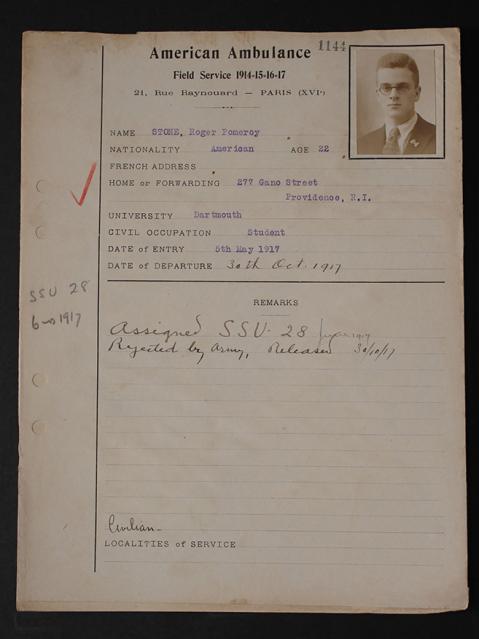 American Ambulance 1144
Field Service 1914-15-16-17
21, Rue Raynouard — PARIS (XVIᵉ)
NAME STONE, Roger Pomeroy
NATIONALITY American AGE 22
FRENCH ADDRESS
HOME or FORWARDING 277 Gano Street
Providence, R.I.
UNIVERSITY Dartmouth
CIVIL OCCUPATION Student
DATE of ENTRY 5th May 1917
DATE of DEPARTURE 30th Oct. 1917
SSU 28
1917
REMARKS
Assigned S.S.U. 28
Rejected by Army, Released 30/10/17
Civilian—
LOCALITIES of SERVICE